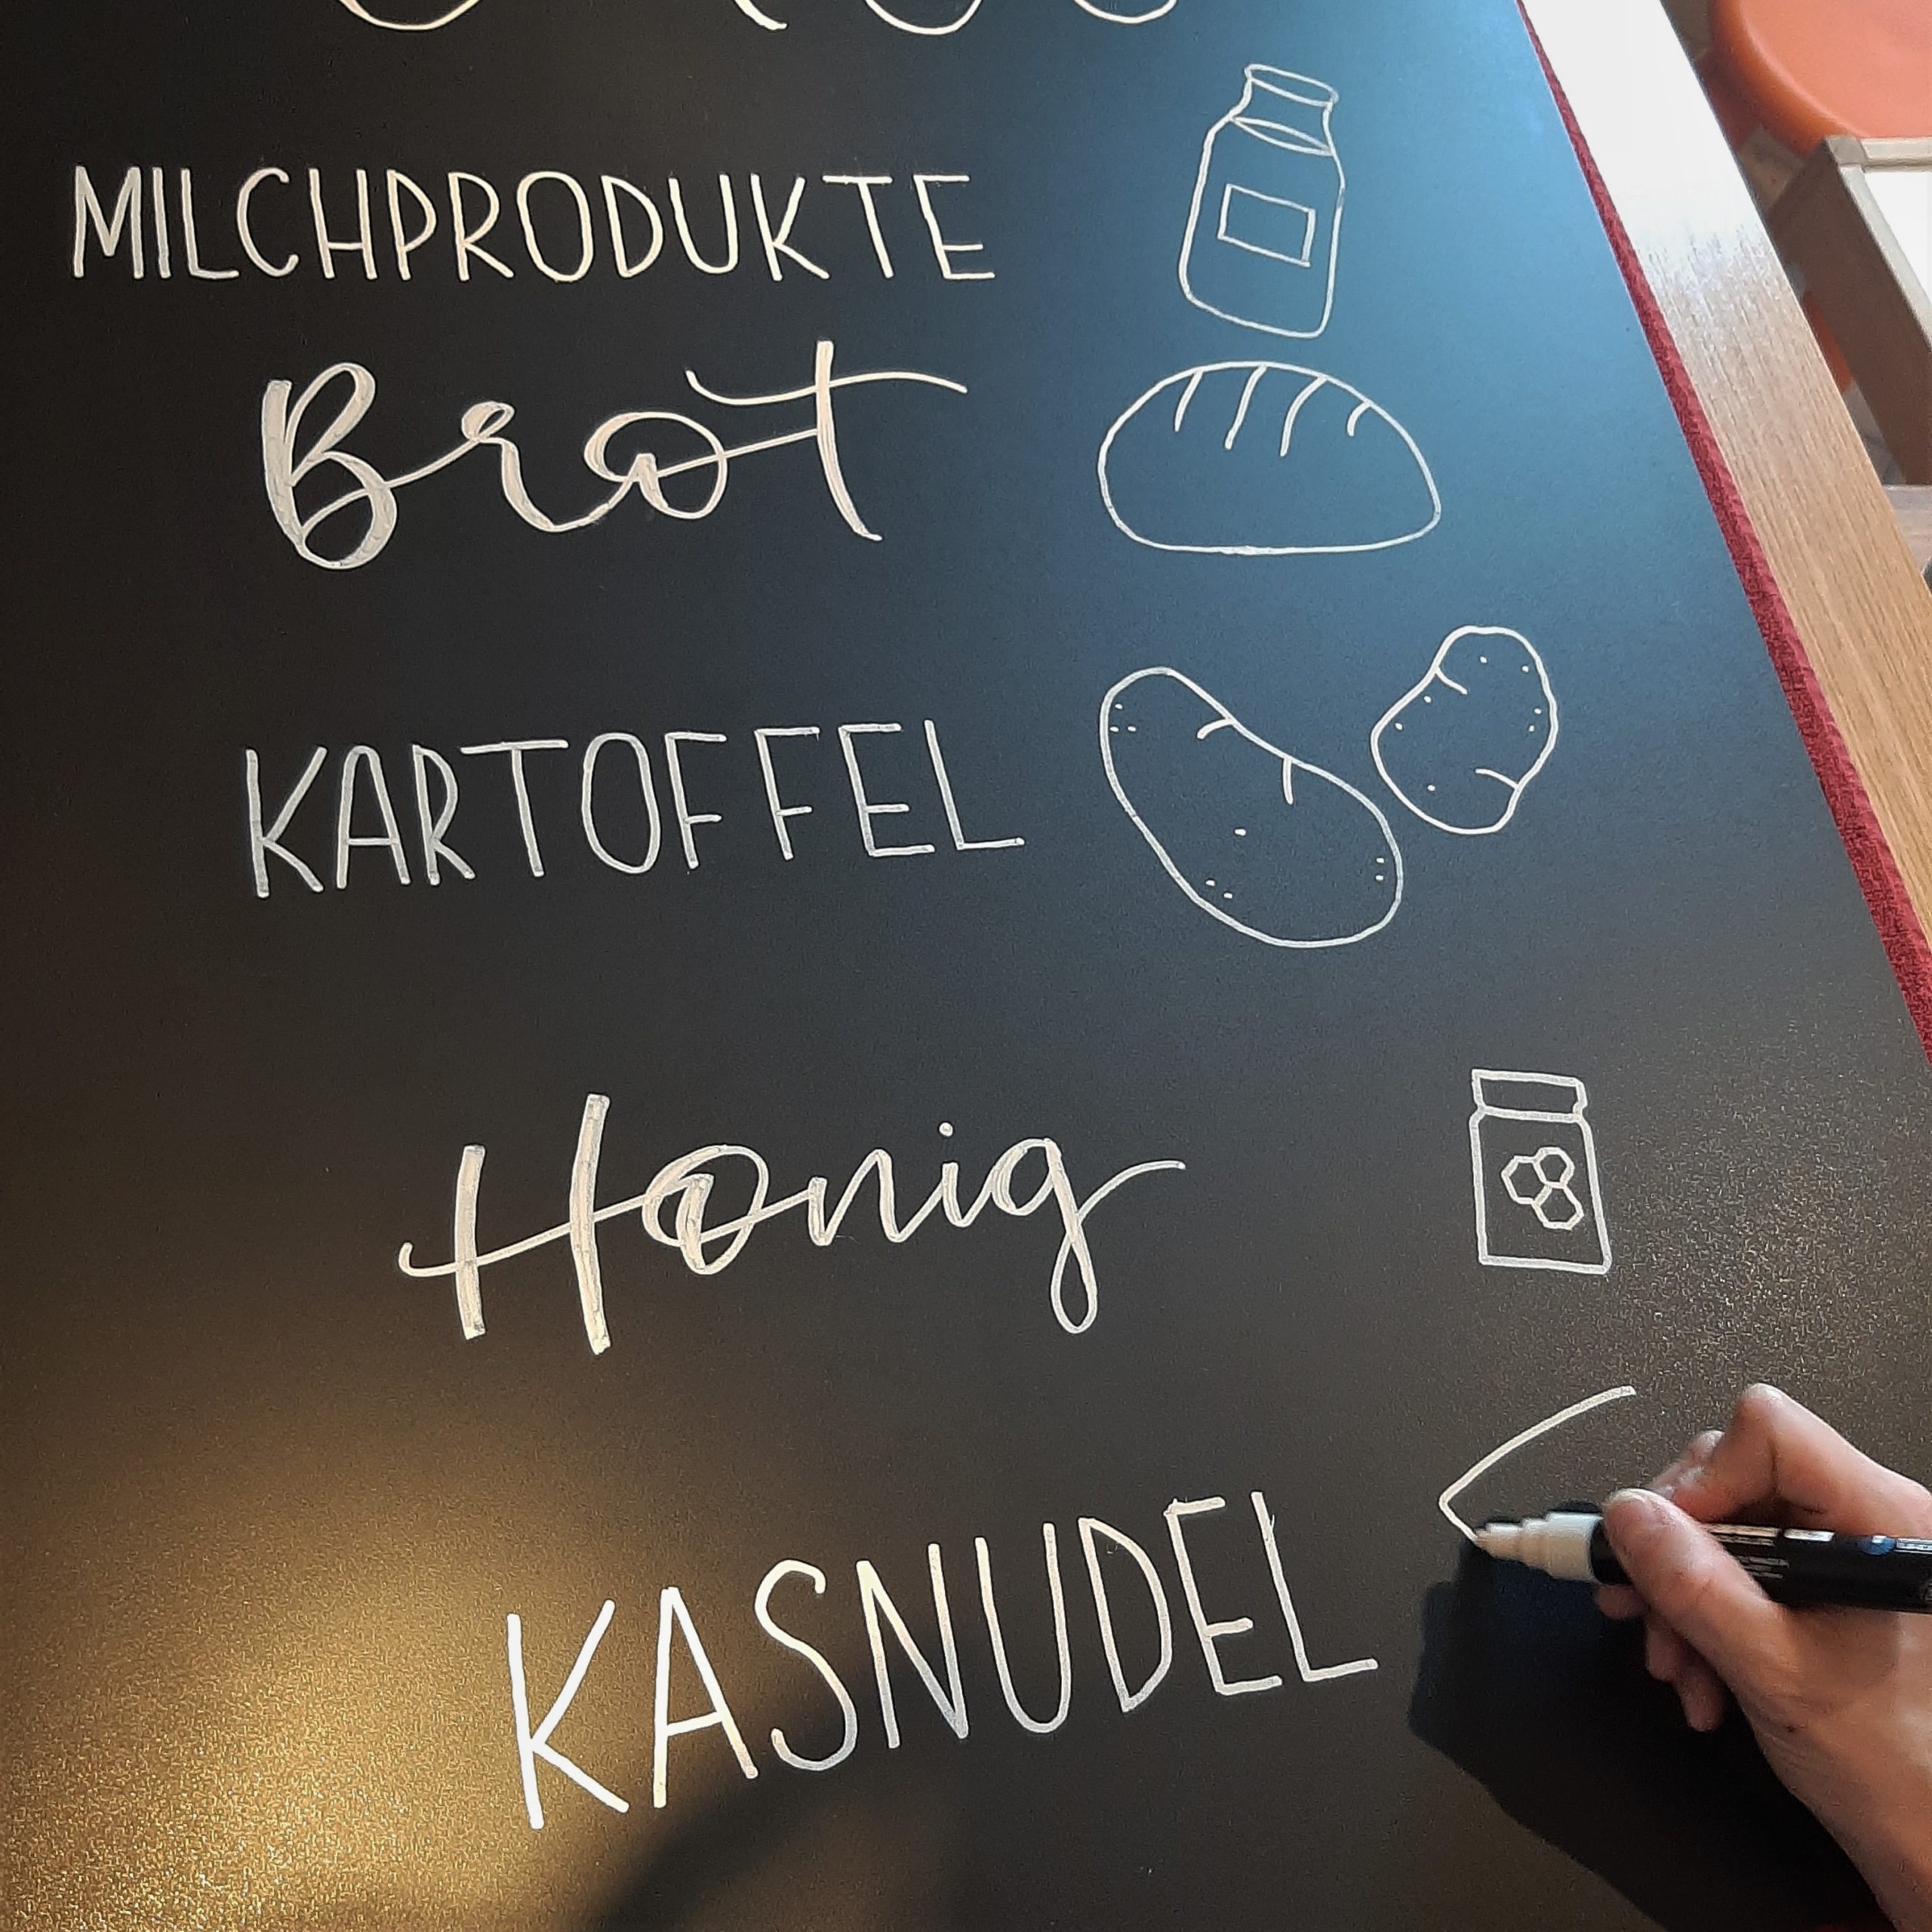 MILCHPRODUKTE
Brot
KARTOFFEL
Honig
KASNUDEL